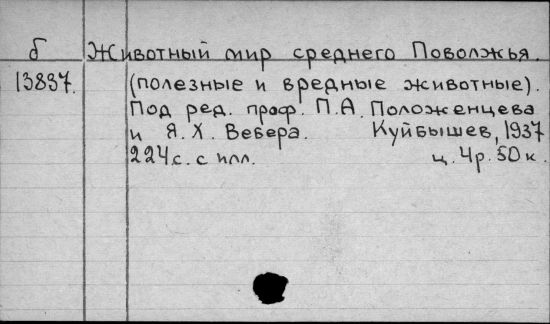 б Животный мир среднего Поволжья.
13837. (полезные и вредные животные).
Под ред. проф. П.А. Положенцева
и Я.Х. Вебера. Куйбышев, 1937
224 с. с илл. ц. 4р. 50к.